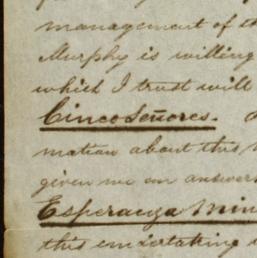 management of th
Murphy is willing
which I trust will
Cinco Señores.
mation about this
given me in answer
Esperanza Min
this undertaking